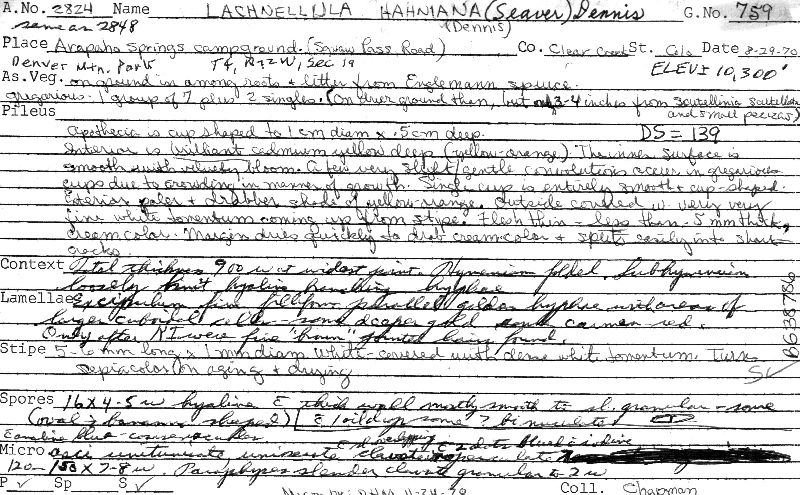 A.No. 2824 Name LACHNELLULA HAHNIANA (Seaver) Dennis G.No. 759
same as 2848 (Dennis)
Place Arapaho Springs campground. (Squaw Pass Road) Co. Clear Creek St. Colo Date 8-29-70
Denver Mtn. Parks T4, R72W, Sec 19 ELEV: 10,300'
As.Veg. on ground in among roots & litter from Englemann spruce.
gregarious. 1 group of 7 plus 2 singles. (On drier ground than, but only 3-4 inches from scutellinia scutellata
and small pezizas)
Pileus
Apothecia is cup shaped to 1 cm diam x .5 cm deep. DS = 139
Interior is brilliant cadmium yellow deep (yellow-orange). The inner surface is
smooth with velvety bloom. A few very slight/gentle convolutions occur in gregarious
cups due to crowding in manner of growth. Single cup is entirely smooth & cup-shaped.
Exterior paler & drabber shade of yellow-orange. Outside covered w. very very
fine white tomentum coming up from stipe. Flesh thin - less than .5 mm thick,
cream color. Margin dries quickly to drab cream color & splits easily into short
cracks.
Context Total thickness 900 u at widest point. Hymenium folded. Subhymenium
loosely knit hyaline branching hyphae
Lamellae Excipulum fine filiform parallel golden hyphae with areas of
larger cuboidal cells - some deeper gold some carmen red.
Only after NI were fine brown, jointed hairs found.
Stipe 5-6 mm long x 1 mm diam white-covered with dense white tomentum. Turns
sepia color on aging & drying
Spores 16 x 4-5 u hyaline c thick wall mostly smooth to sl. granular - some
(oval & banana shaped) c 1 oil drop some ? bi nucleate
blue
Micro asci uniseriate clavate operculate
120-150 x 7-8 u Paraphyses slender clavate granular to 2 u
P Sp S Coll. Chapman
Micro by: DHM 11-24-70
B638786